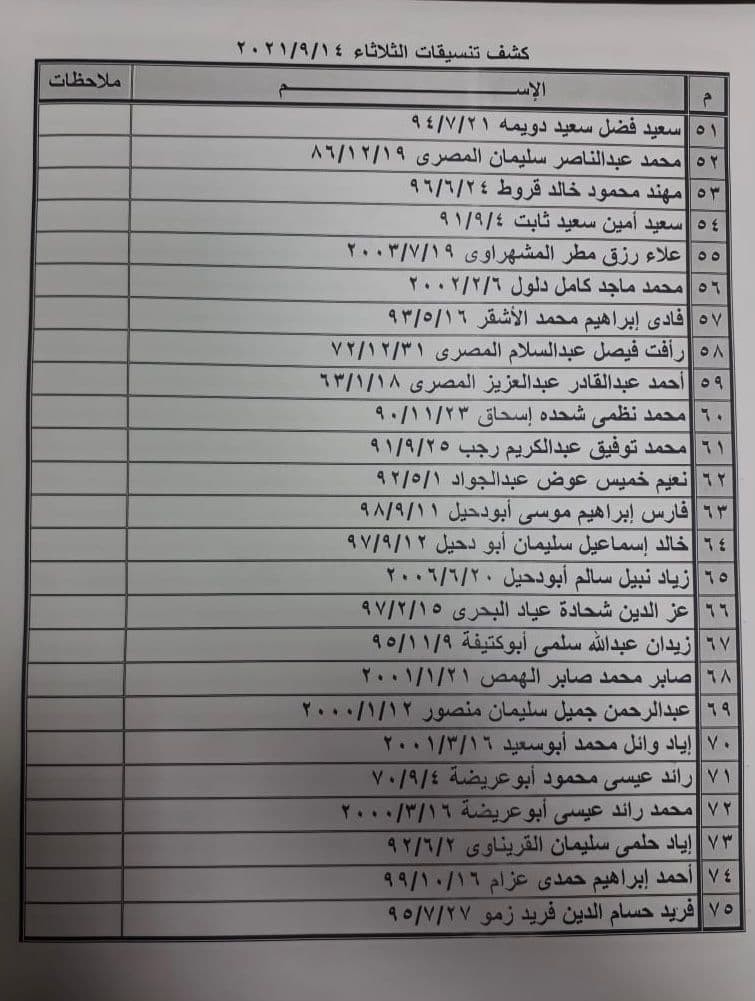 كشف تنسيقات الثلاثاء ٢٠٢١/٩/١٤
م الإســـــــــم ملاحظات
٥١ سعيد فضل سعيد دويمه ٩٤/٧/٢١
٥٢ محمد عبدالناصر سليمان المصرى ٨٦/١٢/١٩
٥٣ مهند محمود خالد قروط ٩٦/٦/٢٤
٥٤ سعيد أمين سعيد ثابت ٩١/٩/٤
٥٥ علاء رزق مطر المشهراوى ٢٠٠٣/٧/١٩
٥٦ محمد ماجد كامل دلول ٢٠٠٢/٢/٦
٥٧ فادى إبراهيم محمد الأشقر ٩٣/٥/١٦
٥٨ رأفت فيصل عبدالسلام المصرى ٧٢/١٢/٣١
٥٩ أحمد عبدالقادر عبدالعزيز المصرى ٦٣/١/١٨
٦٠ محمد نظمى شحده إسحاق ٩٠/١١/٢٣
٦١ محمد توفيق عبدالكريم رجب ٩١/٩/٢٥
٦٢ نعيم خميس عوض عبدالجواد ٩٢/٥/١
٦٣ فارس إبراهيم موسى أبودحيل ٩٨/٩/١١
٦٤ خالد إسماعيل سليمان أبو دحيل ٩٧/٩/١٢
٦٥ زياد نبيل سالم أبودحيل ٢٠٠٦/٦/٢٠
٦٦ عز الدين شحادة عياد البحرى ٩٧/٢/١٥
٦٧ زيدان عبدالله سلمى أبوكتيفة ٩٥/١١/٩
٦٨ صابر محمد صابر الهمص ٢٠٠١/١/٢١
٦٩ عبدالرحمن جميل سليمان منصور ٢٠٠٠/١/١٢
٧٠ إياد وائل محمد أبوسعيد ٢٠٠١/٣/١٦
٧١ رائد عيسى محمود أبوعريضة ٧٠/٩/٤
٧٢ محمد رائد عيسى أبوعريضة ٢٠٠٠/٣/١٦
٧٣ إياد حلمى سليمان القريناوى ٩٢/٦/٢
٧٤ أحمد إبراهيم حمدى عزام ٩٩/١٠/١٦
٧٥ فريد حسام الدين فريد زمو ٩٥/٧/٢٧